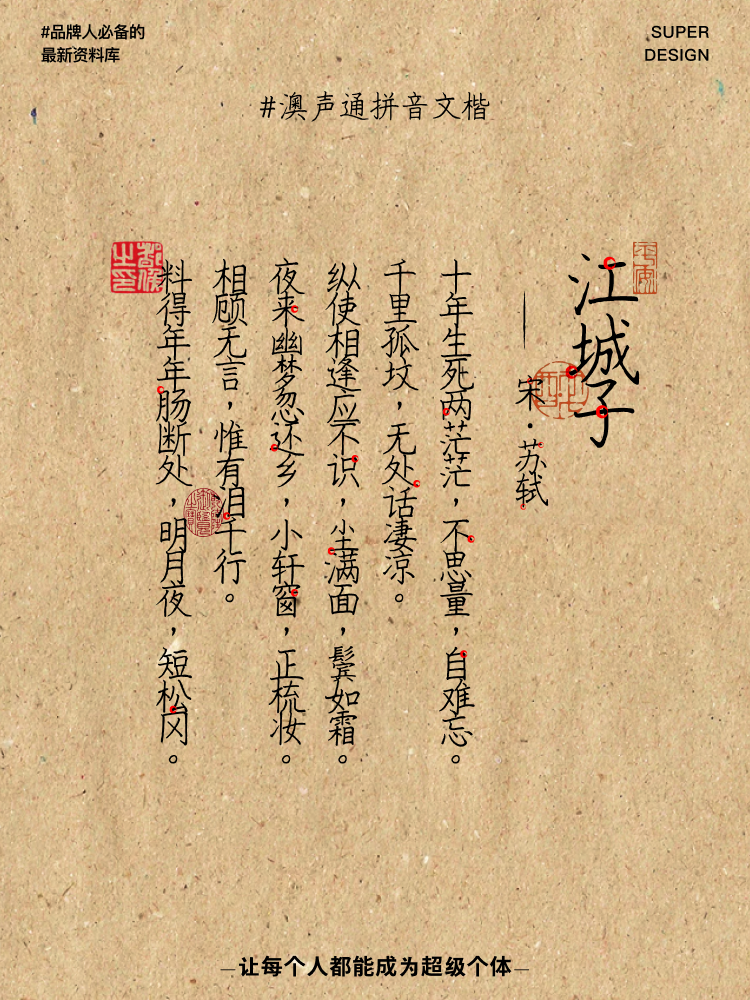 #品牌人必备的
最新资料库
SUPER
DESIGN
#澳声通拼音文楷
江城子
—宋·苏轼
十年生死两茫茫，不思量，自难忘。
千里孤坟，无处话凄凉。
纵使相逢应不识，尘满面，鬓如霜。
夜来幽梦忽还乡，小轩窗，正梳妆。
相顾无言，惟有泪千行。
料得年年肠断处，明月夜，短松冈。
—让每个人都能成为超级个体—